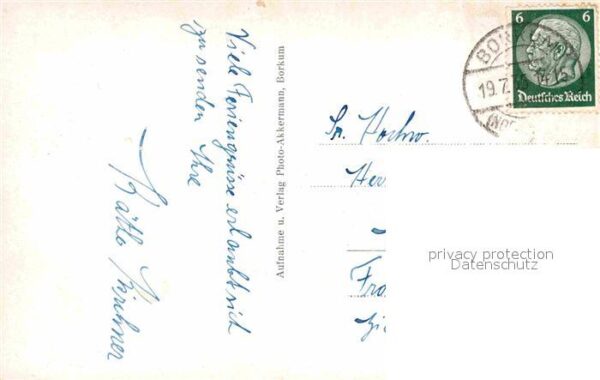 Viele Feriengrüsse erlaubt sich
zu senden Ihre
Käthe Kirchner
Aufnahme u. Verlag Photo-Akkermann, Borkum
6 6
Deutsches Reich
19.7.
Sr. Hochw.
Her
Fra
privacy protection
Datenschutz